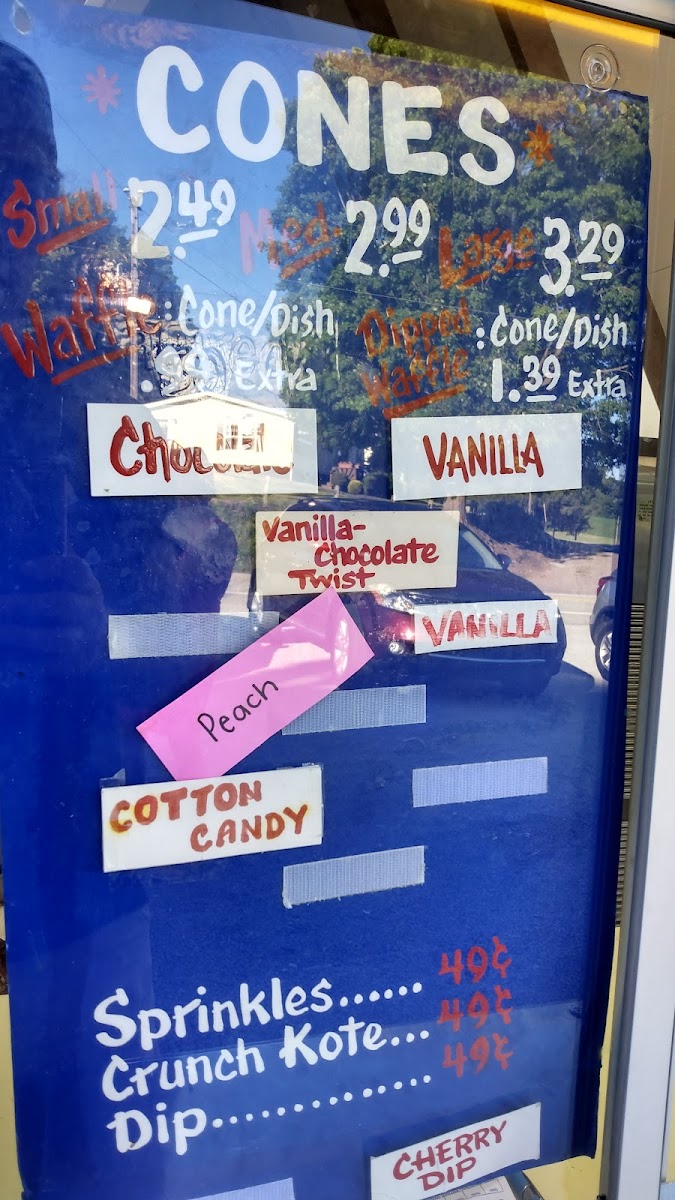 * CONES *
Small 2.49 Med. 2.99 Large 3.29
Waffle : Cone/Dish
.99 Extra
Dipped Waffle : Cone/Dish
1.39 Extra
Chocolate
VANILLA
Vanilla-
Chocolate
Twist
VANILLA
Peach
COTTON
CANDY
Sprinkles...... 49¢
Crunch Kote... 49¢
Dip.............. 49¢
CHERRY
DIP